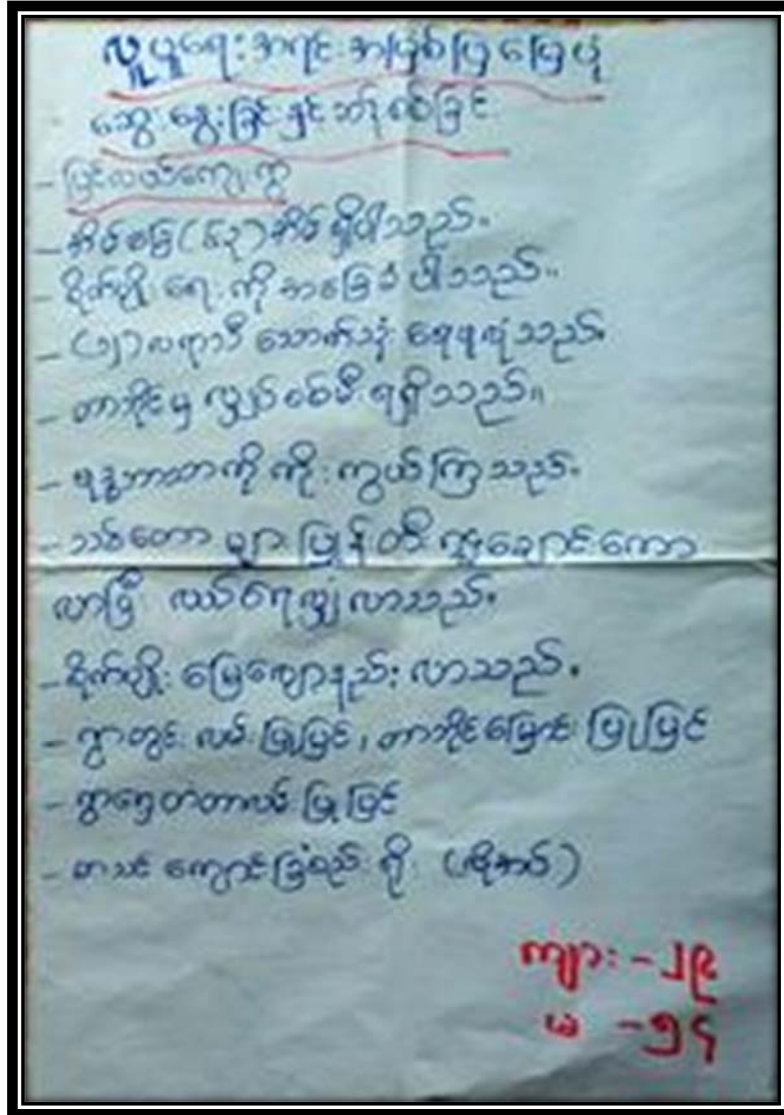 လူမှုရေး အရင်းအမြစ်ပြမြေပုံ
ဆွေးနွေးခြင်းနှင့်
- ပြင်လယ်ကျေးရွာ
- အိမ်ခြေ (၆၃) အိမ်ရှိပါသည်။
- စိုက်ပျိုးရေးကိုအခြေခံပါသည်။
- (၁၂) လရာသီ သောက်သုံးရေရရှိသည်။
- တာဘိုင်မှ လျှပ်စစ်မီးရရှိသည်။
- ဗုဒ္ဓဘာသာကိုကိုးကွယ်ကြသည်။
- သစ်တောများပြုန်းတီး၍ချောင်းကော
လာပြီး လယ်ရေလျှံလာသည်။
- စိုက်ပျိုးမြေကျောနည်းလာသည်။
- ရွာတွင်းလမ်းပြုပြင်၊ တာဘိုင်မြောင်းပြုပြင်
- ရွာရှေ့တံတားပြုပြင်
- စာသင်ကျောင်းခြံစည်းရိုး (လိုအပ်)
ကျား - ၂၉
မ - ၅၄